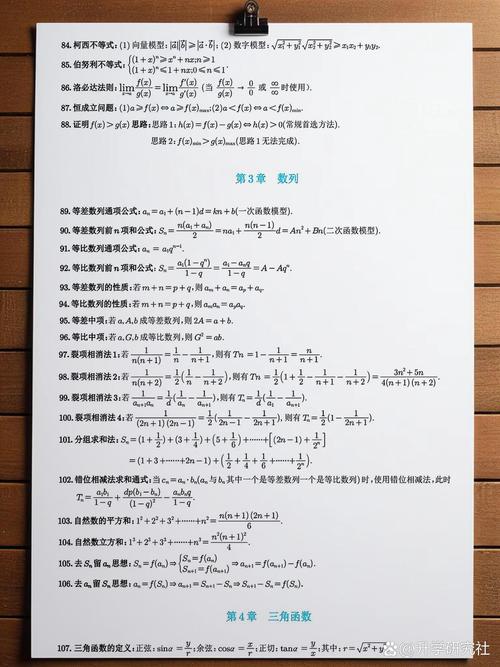 84. 柯西不等式: (1) 向量模型: |a||b| ≥ |a·b|; (2) 数字模型: √(x₁²+y₁²)√(x₂²+y₂²) ≥ x₁x₂+y₁y₂.
85. 伯努利不等式: {(1+x)ⁿ ≥ xⁿ+nx; n≥1
(1+x)ⁿ ≤ 1+nx; 0≤n≤1.
86. 洛必达法则: lim f(x)/g(x) = lim f′(x)/g′(x) (当 f(x)/g(x) → 0/0 或 ∞/∞ 时使用).
87. 恒成立问题: (1) a≥f(x)⇔a≥f(x)max; (2) a<f(x)⇔a<f(x)min.
88. 证明 f(x)>g(x) 思路: 思路1: h(x)=f(x)-g(x)⇔h(x)>0(常规首选方法).
思路2: f(x)min>g(x)max(思路1无法完成).
第3章 数列
89. 等差数列通项公式: aₙ=a₁+(n-1)d=kn+b(一次函数模型).
90. 等差数列前n项和公式: Sₙ=n(a₁+aₙ)/2=na₁+n(n-1)/2 d=An²+Bn(二次函数模型).
91. 等比数列通项公式: aₙ=a₁qⁿ⁻¹.
92. 等比数列前n项和公式: Sₙ=a₁(1-qⁿ)/(1-q)=(a₁-aₙq)/(1-q)=A-Aqⁿ.
93. 等差数列的性质: 若m+n=p+q, 则aₘ+aₙ=aₚ+a_q.
94. 等比数列的性质: 若m+n=p+q, 则aₘaₙ=aₚa_q.
95. 等差中项: 若a,A,b成等差数列, 则2A=a+b.
96. 等比中项: 若a,G,b成等比数列, 则G²=ab.
97. 裂项相消法1: 若1/(n(n+1))=1/n-1/(n+1), 则有Tn=1-1/(n+1)=n/(n+1).
98. 裂项相消法2: 若1/(n(n+2))=1/2(1/n-1/(n+2)), 则有Tn=1/2(1+1/2-1/(n+1)-1/(n+2))=(3n²+5n)/(4(n+1)(n+2)).
99. 裂项相消法3: 若1/(aₙ₊₁aₙ)=1/d(1/aₙ-1/aₙ₊₁), 则有Tₙ=1/d(1/a₁-1/aₙ₊₁).
100. 裂项相消法4: 若1/((2n+1)(2n-1))=1/2(1/(2n-1)-1/(2n+1)), 则有Tₙ=1/2(1-1/(2n+1)).
101. 分组求和法: Sₙ=(1+1/2)+(3+1/4)+(5+1/6)+······+[(2n-1)+1/2ⁿ]
=(1+3+······+2n-1)+(1/2+1/4+1/6+······+1/2ⁿ).
102. 错位相减法求和通式: 当cₙ=aₙ·bₙ(aₙ与bₙ其中一个是等差数列一个是等比数列)时, 使用错位相减法, 此时
Tₙ=a₁b₁/(1-q)+dp(b₁-bₙ)/(1-q)²-aₙbₙq/(1-q).
103. 自然数的平方和: 1²+2²+3²+······+n²=n(n+1)(2n+1)/6.
104. 自然数立方和: 1³+2³+3³+······+n³=n²(n+1)²/4.
105. 去Sₙ留aₙ思想: Sₙ=f(aₙ)⇒{Sₙ=f(aₙ)
Sₙ₊₁=f(aₙ₊₁)⇒aₙ₊₁=f(aₙ₊₁)-f(aₙ).
106. 去aₙ留Sₙ思想: aₙ=f(Sₙ)⇒aₙ₊₁=Sₙ₊₁-Sₙ⇒Sₙ₊₁-Sₙ=f(Sₙ).
第4章 三角函数
107. 三角函数的定义: 正弦: sinα=y/r; 余弦: cosα=x/r; 正切: tanα=y/x; 其中: r=√(x²+y²)
升学研究社